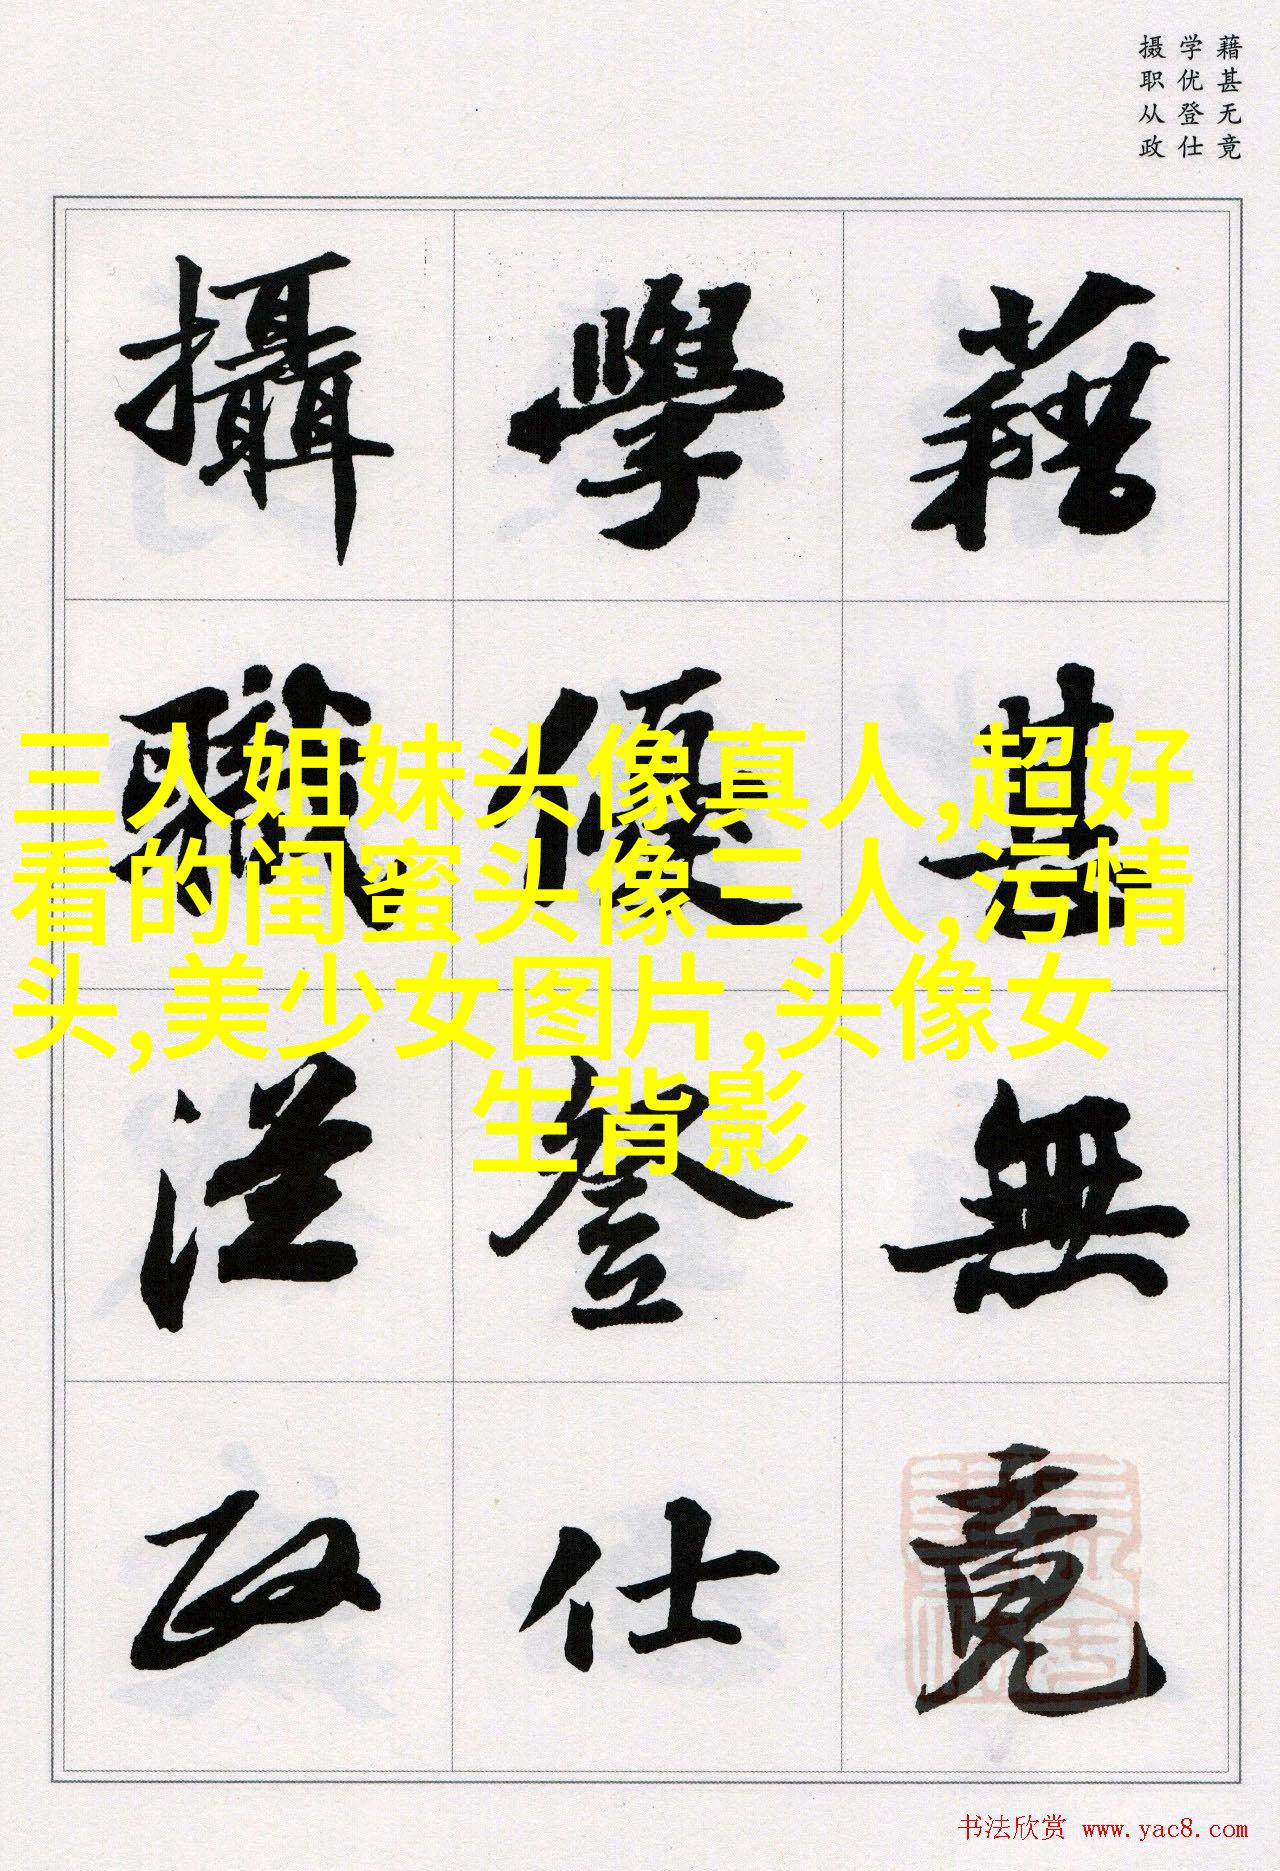 藉甚无竟
学优登仕
摄职从政
藉甚無竟
學優登仕
攝職從政
三人姐妹头像真人,超好
看的闺蜜头像三人,污情
头,美少女图片,头像女
生背影
书法欣赏 www.yac8.com